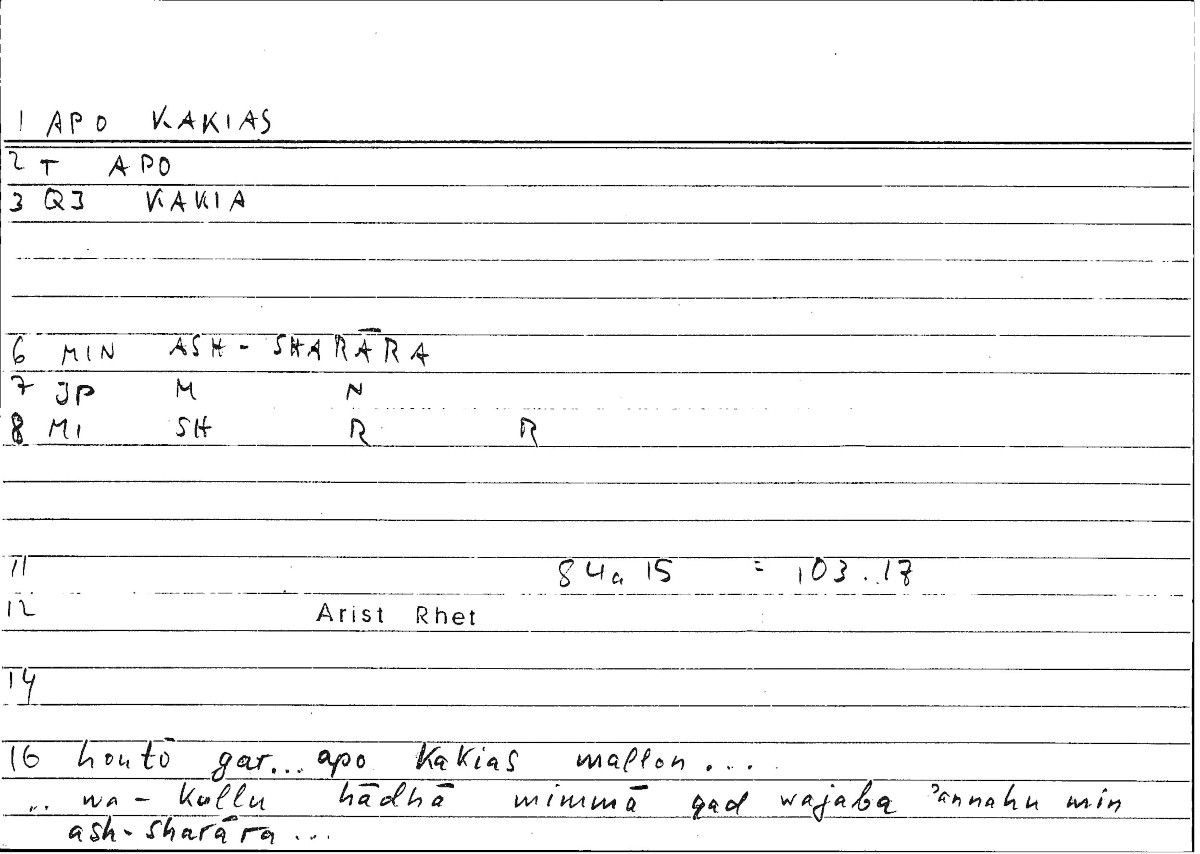 1 APO KAKIAS
2 T APO
3 QJ KAKIA
6 MIN ASH-SHARĀRA
7 JP M N
8 MI SH R R
11 84a 15 = 103.17
12 Arist Rhet
14
16 houtō gar... apo kakias mallon ...
... wa-kullu hādhā mimmā qad wajaba ʾannahu min
ash-sharāra ...